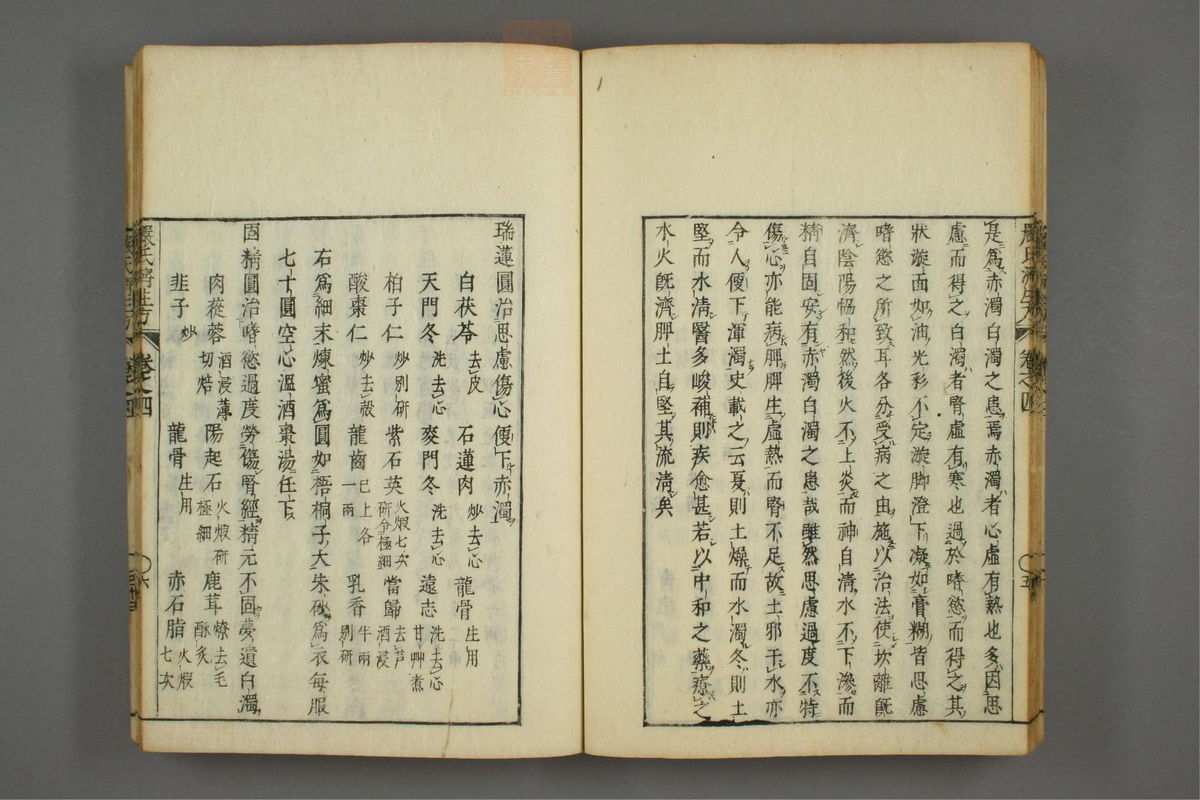 嚴氏濟生方 卷之四 五
是爲赤濁白濁之患焉赤濁者心虛有熱也多因思
慮而得之白濁者腎虛有寒也過於嗜慾而得之其
狀漩面如油光彩不定漩脚澄下凝如膏糊皆思慮
嗜慾之所致耳各分受病之由施以治法使坎離既
濟陰陽恊和然後火不上炎而神自清水不下滲而
精自固安有赤濁白濁之患哉雖然思慮過度不特
傷心亦能病脾脾生虛熱而腎不足故土邪干水亦
令人便下渾濁史載之云夏則土燥而水濁冬則土
堅而水清醫多峻補則疾愈甚若以中和之藥療之
水火既濟脾土自堅其流清矣
瑞蓮圓治思慮傷心便下赤濁
白茯苓 去皮 石蓮肉 炒去心 龍骨 生用
天門冬 洗去心 麥門冬 洗去心 遠志 洗去心甘艸煮
柏子仁 炒別研 紫石英 火煆七次研令極細 當歸 去芦酒浸
酸棗仁 炒去殼 龍齒 已上各一兩 乳香 半兩別研
右爲細末煉蜜爲圓如梧桐子大朱砂爲衣每服
七十圓空心溫酒棗湯任下
固精圓治嗜慾過度勞傷腎經精元不固夢遺白濁
肉蓯蓉 酒浸薄切焙 陽起石 火煆研極細 鹿茸 燎去毛酥炙
韭子 炒 龍骨 生用 赤石脂 火煆七次
嚴氏濟生方 卷之四 六